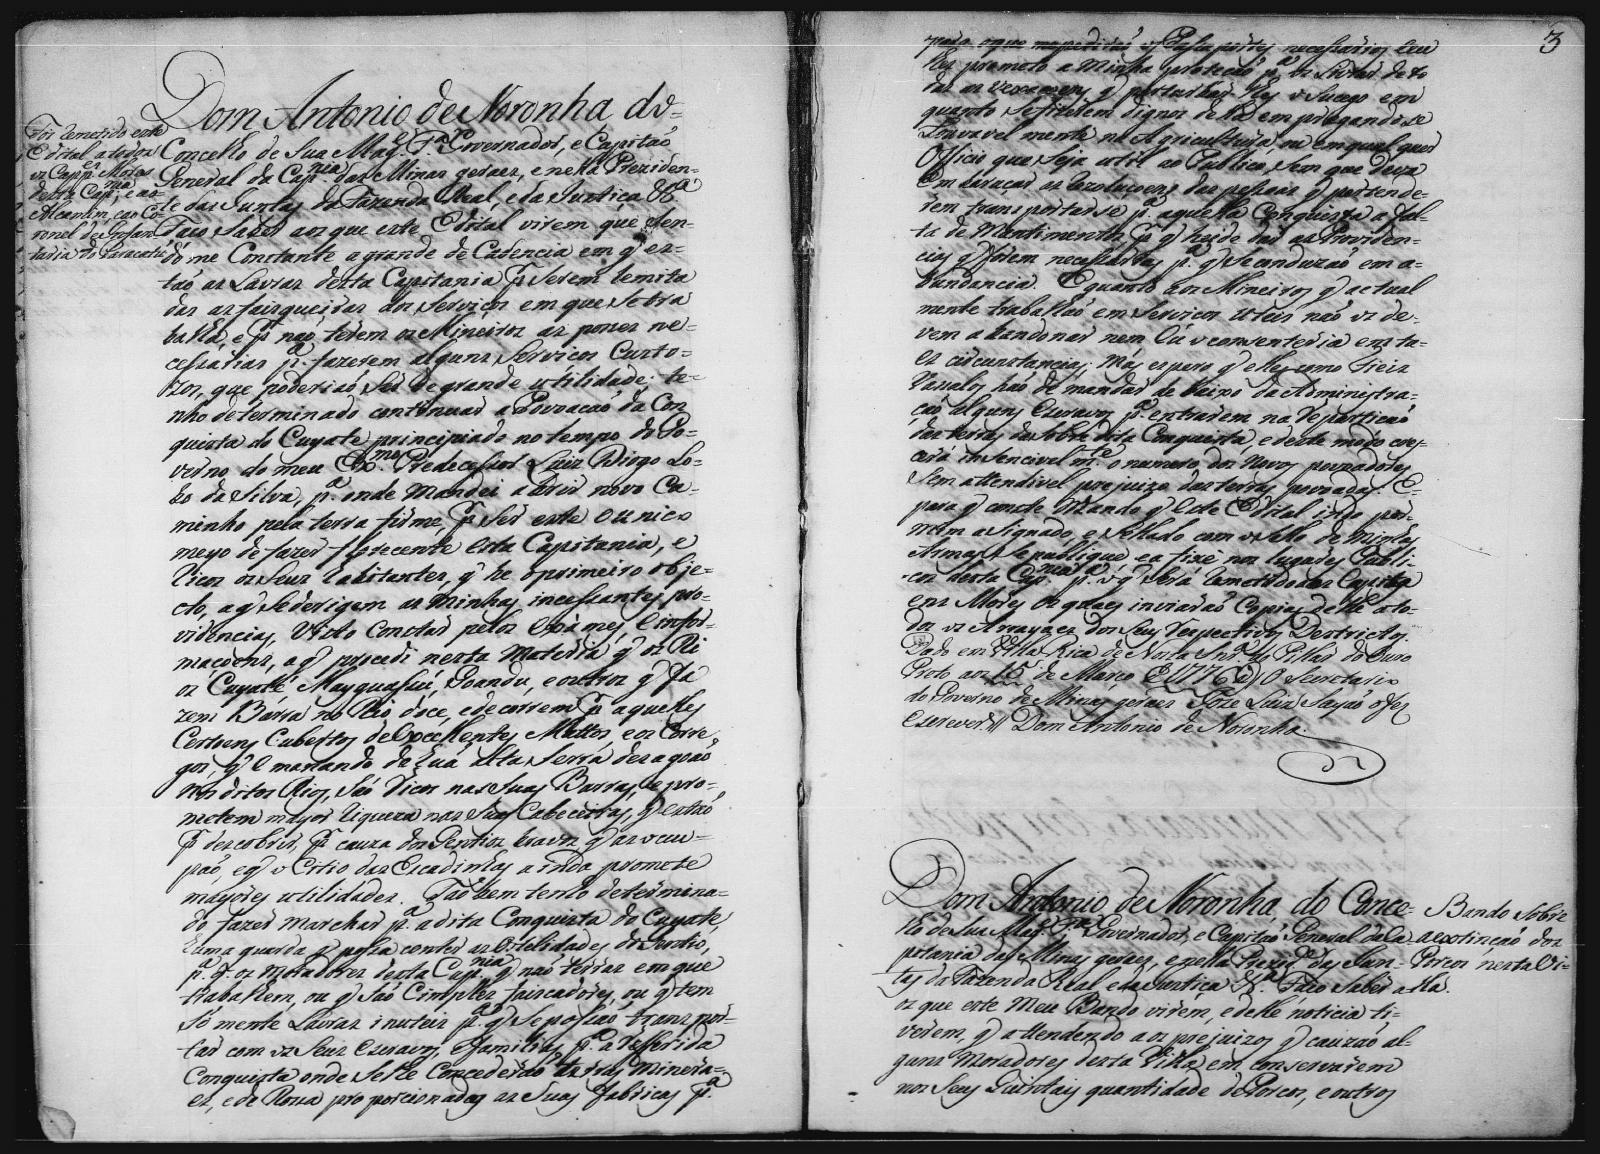 Dom Antonio de Noronha do-
Foi remetido este
Edital a todos
os Capp.es Mores
desta Cap.nia, e ao
Alcantm, e ao Co-
ronel de Infan
taria do Paracatú
Concelho de Sua Mag.e F.ma Governador, e Capitaõ
General da Cap.nia das Minas geraes, e nella Preziden-
te das Juntas da Fazenda Real, e da Justica &.a
Faço saber aos que este Edital virem que Sen-
dome Constante a grande decadencia em q' es-
taõ as Lavras desta Capitania p.r serem lemita
das as faisqueiras dos Serviços em que se tra
balha, e p.r naõ terem os Mineiros as posses ne-
cessarias p.a fazerem alguns Serviços Custo-
zos, que poderiaõ ser de grande utilidade; te-
nho determinado continuar a Povoacaõ da Con
quista do Cuyate principiada no tempo do Go-
verno do meu Ex.mo Predecessor Luiz Diogo Lo-
bo da Silva, p.a onde Mandei abrir novo Ca-
minho pela terra firme, p.r ser este o unico
meyo de fazer florecente esta Capitania, e
ricos os Seus habitantes, q' he o primeiro obje-
cto, a q' se derigem as minhas incessantes pro-
videncias, Visto constar pelos exames e infor-
macoens, a q' procedi nesta Materia q' os Ri
os Cuyaté Mayguassú, Goandú, e outros q' fa
zem Barra no Rio doce, e decorrem p.r aquelles
Certoens Cubertos de excellentes Mattos e os Corre
gos, q' emanando de hua alta Serra desagoaõ
nos ditos Rios, saõ ricos nas Suas Barras, e pro-
metem mayor riqueza nas Suas Cabeceiras, q' estaõ
p.r descobrir, p.r cauza dos Gentios bravos q' as ocu-
paõ, e q' o Citio das Escadinhas ainda promete
mayores utilidades. Taõ bem tenho determina-
do fazer marchar p.a a dita Conquista do Cuyate,
huma guarda q' possa conter as ostelidades do Gentio,
p.a q' os Moradores desta Cap.nia q' naõ terras em que
trabalhem, ou q' saõ Cimples faiscadores, ou q' tem
Sómente Lavras inuteis p.a q' se possaõ transpor-
tar com os Seus escravos, e familias p.a a referida
Conquista onde se lhe Concederaõ terras minera-
es, e de Rossa proporcionadas as Suas fabricas p.a
3
para o que me pediraõ os Passaportes necessarios eu
lhes prometo a Minha proteçaõ p.a os Livrar de to
das as vexaçoens q' perturbar lhes o Sucego em
quanto Se fizerem dignos della empregando se
Louvavel mente na Agricultura ou em qual quer
Officio que Seja util ao Publico, Sem que deva
embaracar as rezolucoens das pessoas q' pertende-
rem transportarse p.a aquella Conquista a fal-
ta de Mantimentos p.r q' heide dar as Providen-
cias q' forem necessarias p.a q' Se conduzaõ em a-
bundancia. E quanto aos Mineiros q' actual
mente trabalhaõ em Serviços uteis naõ os de-
vem abandonar nem Eu o consenteria em ta-
es circunstancias; Mas espero q' elles como Fieis
Vassalos haõ de mandar de baixo da Administra-
çaõ alguns Escravos p.a entrarem na repartiçaõ
das terras da Sobre dita Conquista, e deste modo cres-
cerá insencivel m.te o numero dos Novos povoadores
Sem attendivel prejuizo das terras povoadas. E
para q' conste Mando q' este Edital indo por-
mim asignado, e Sellado com o Sello de Minhas
Armas Se publique, e a fixe nos lugares Publi-
cos desta Cap.nia p.a o q' Será remetido aos Capita
ens Mores os quaes inviaraõ Copias delle a to-
dos os Arrayaes dos Seus respectivos Destrictos.
Dado em Villa Rica de Nossa Snr.a do Pillar do Ouro
Preto aos 15 de Março de 1776 O Secretario
do Governo de Minas geraes Joze Luiz Sayaõ o fez
escrever.// Dom Antonio de Noronha.
Dom Antonio de Noronha do Conce-
lho de Sua Mag.e F.ma Governador, e Capitaõ General da Ca
pitania das Minas geraes, e nella Prezid.e das Jun-
tas da Fazenda Real e da Justica &.a Faço Saber a
os que este Meu Bando virem, e delle noticia ti-
verem, q' attendendo aos prejuizos q' cauzaõ al-
guns Moradores desta Villa em conservarem
nos Seus Quintais quantidade de Porcos, e outros
Bando Sobre
a extinçaõ dos
Porcos nesta Vi-
lla.